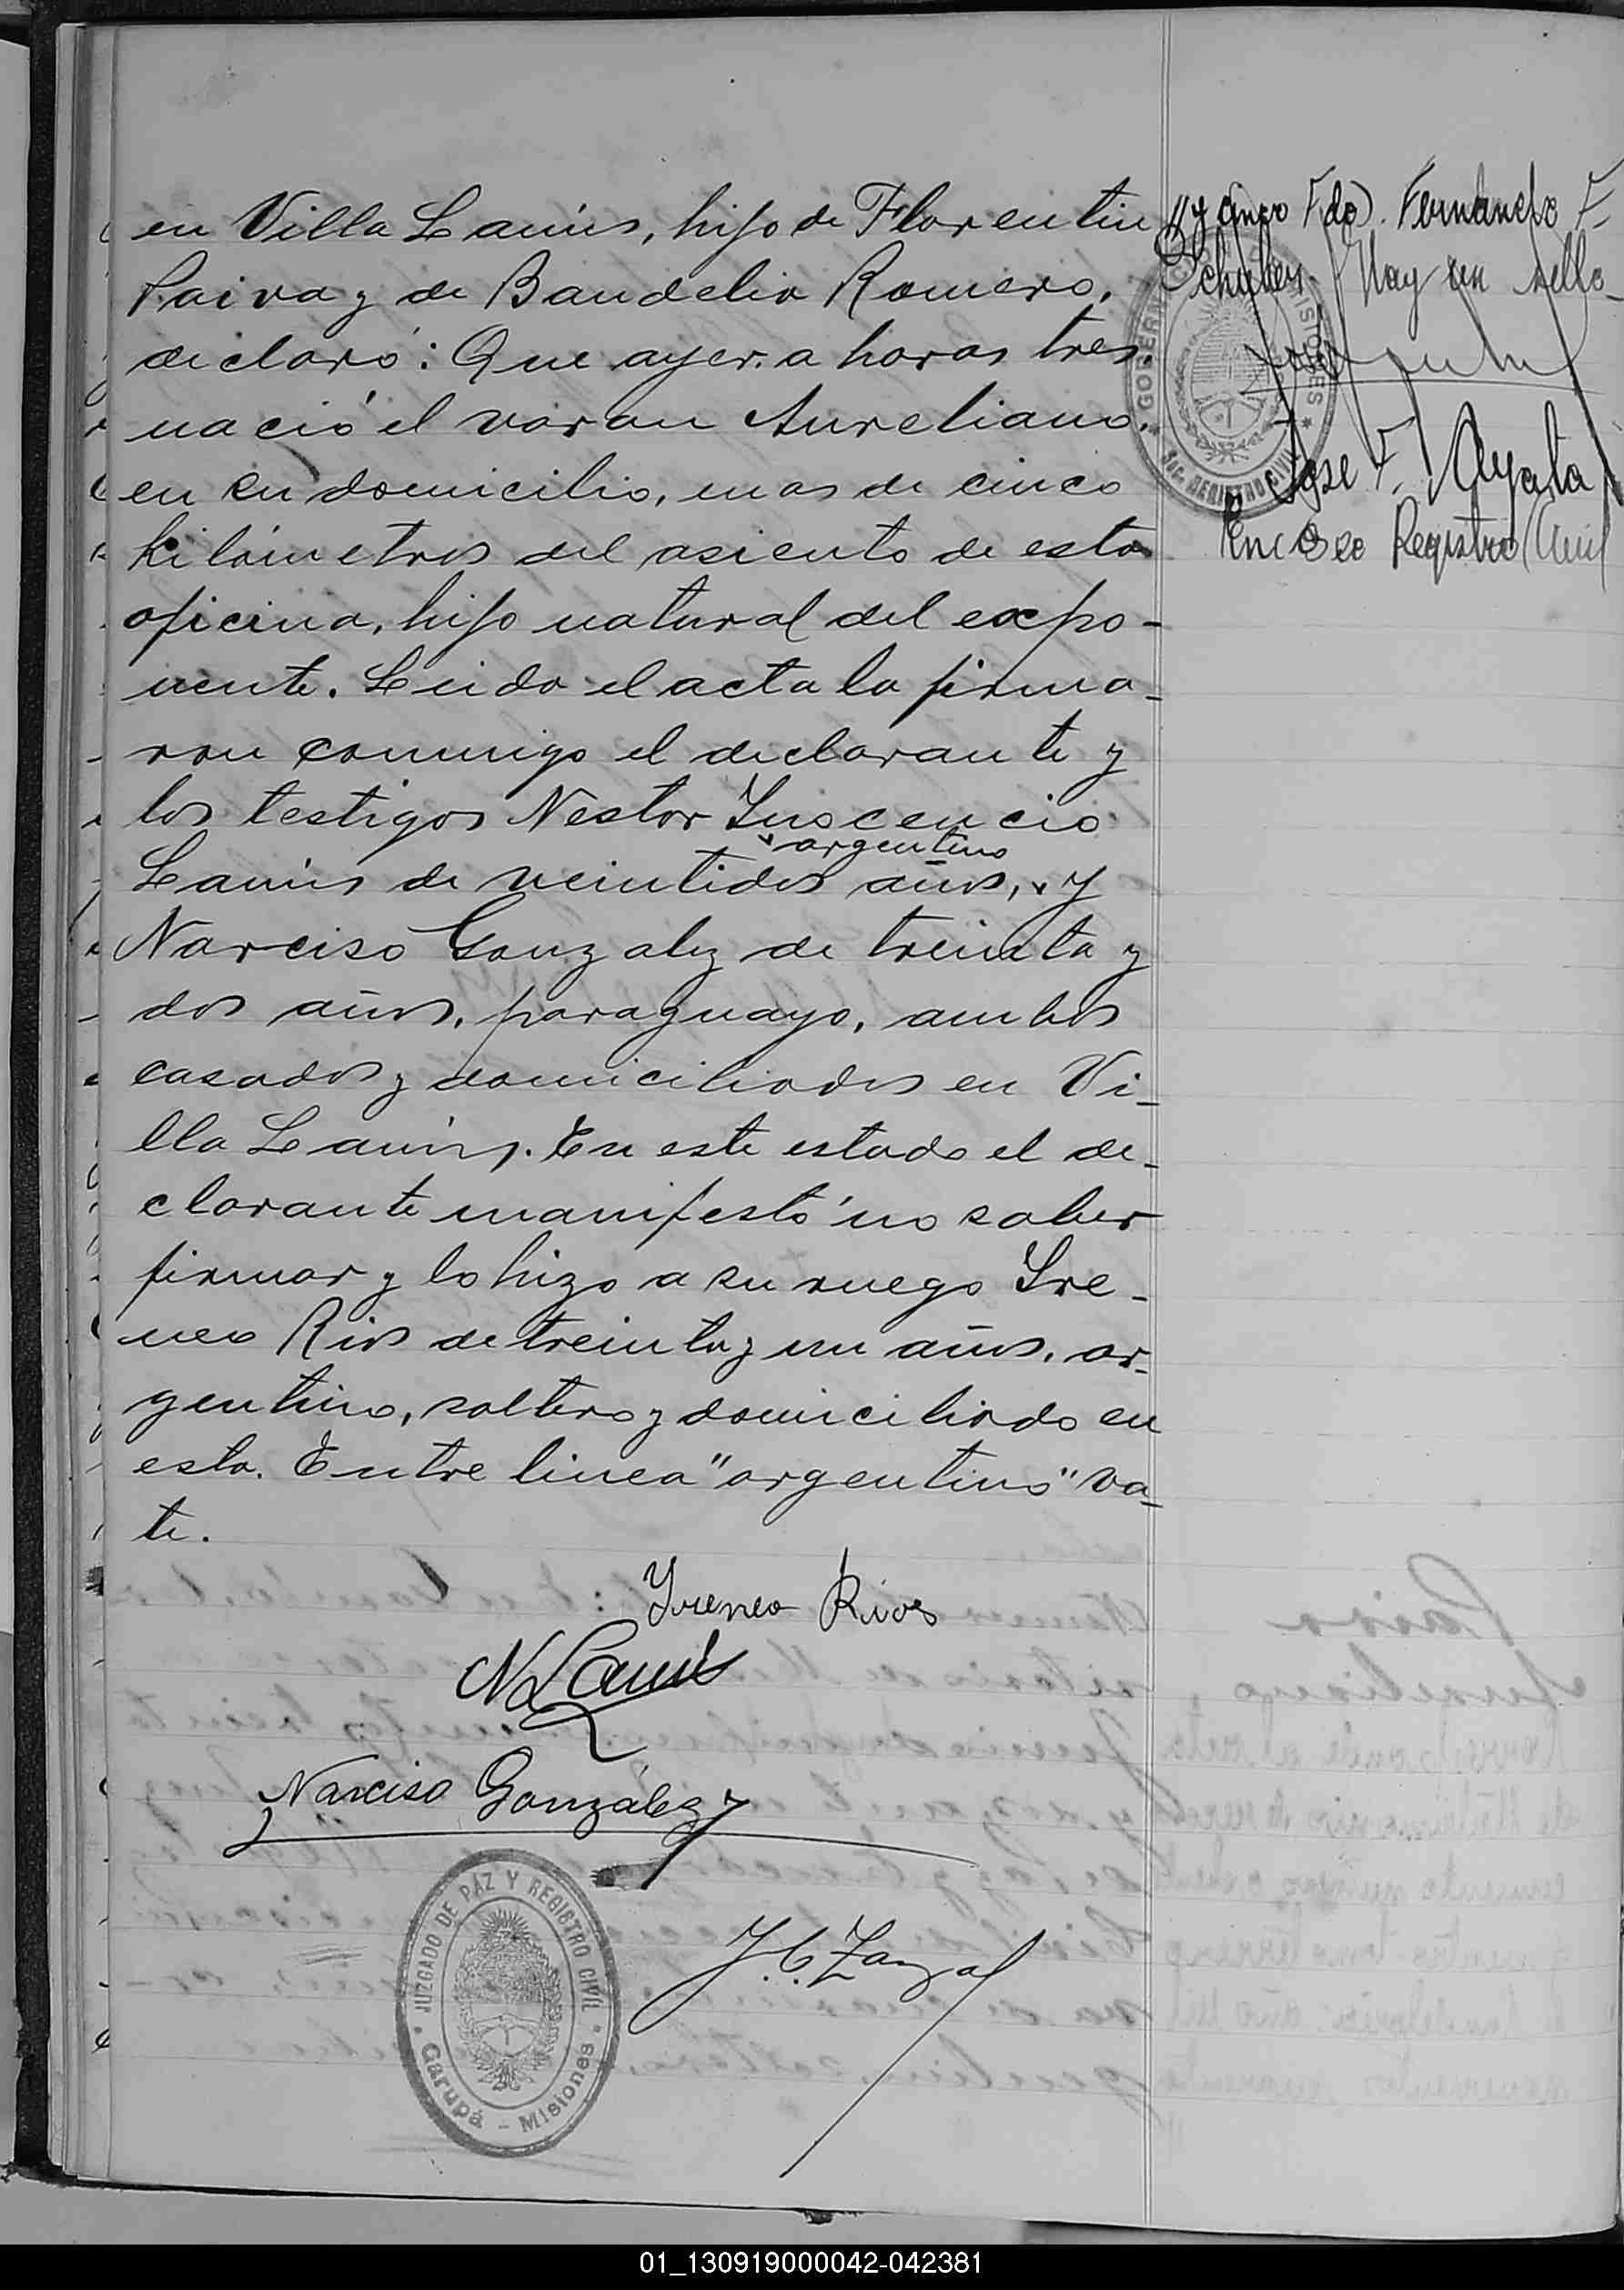 en Villa Lanús, hijo de Florentin
Paiva y de Baudelia Romero,
declaró: Que ayer a horas tres
nació el varon Aureliano,
en su domicilio, mas de cinco
kilómetros del asiento de esta
oficina, hijo natural del expo-
nente. Leida el acta la firma-
ron conmigo el declarante y
los testigos Nestor Inocencio
argentino
Lanús de veintidos años, y
Narciso Gonzalez de treinta y
dos años, paraguayo, ambos
casados y domiciliados en Vi-
lla Lanús. En este estado el de-
clarante manifestó no saber
firmar y lo hizo a su ruego Ire-
neo Rios de treinta y un años, ar-
gentino, soltero y domiciliado en
esta. Entre linea "argentino" va-
le.
Yreneo Rios
N Lanús
Narciso González
JUZGADO DE PAZ Y REGISTRO CIVIL
Garupá - Misiones
y cinco Fdo). Fernando F.
Schuber. Hay un sello
GOBERN MISIONES
SEC. REGISTRO CIVIL
Jose F. Ayala
Registro Civil
01_130919000042-042381